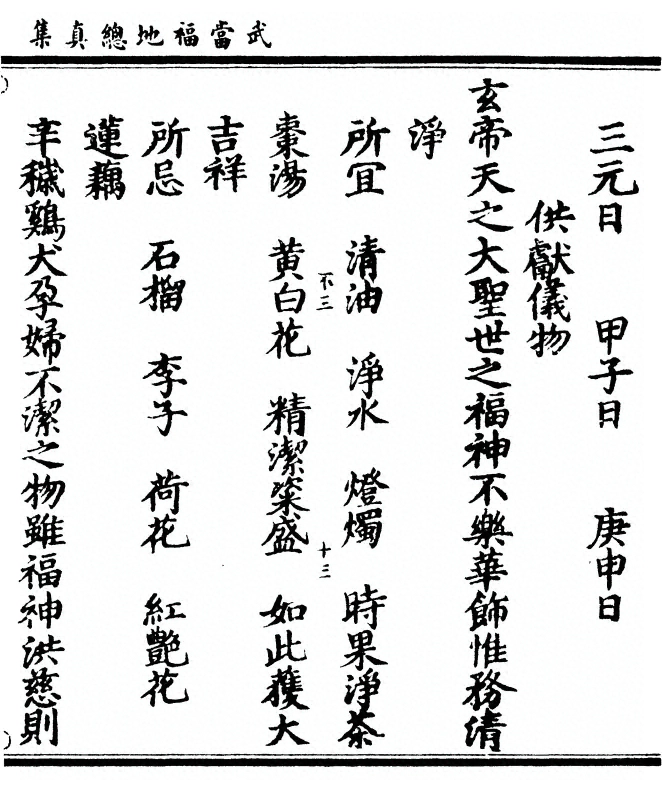 武當福地總真集
三元日 甲子日 庚申日
供獻儀物
玄帝天之大聖世之福神不樂華飾惟務清
淨
所宜 清油 淨水 燈燭 時果淨茶
不三 十三
棗湯 黃白花 精潔粢盛 如此獲大
吉祥
所忌 石榴 李子 荷花 紅艷花
蓮藕
辛穢鷄犬孕婦不潔之物雖福神洪慈則